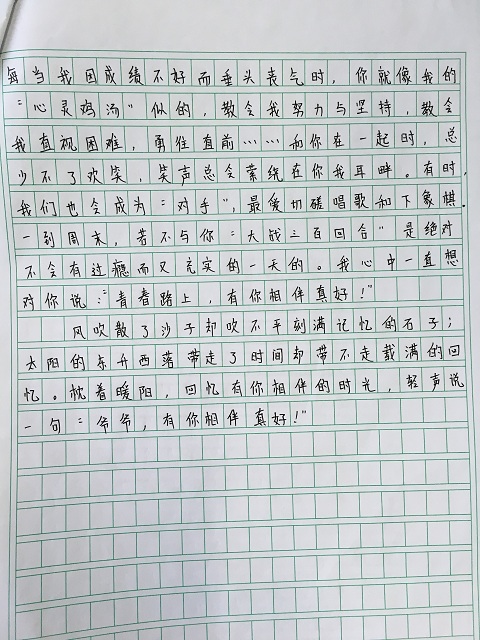 每当我因成绩不好而垂头丧气时，你就像我的
“心灵鸡汤”似的，教会我努力与坚持，教会
我直视困难，勇往直前……和你在一起时，总
少不了欢笑，笑声总会萦绕在你我耳畔。有时，
我们也会成为“对手”，最爱切磋唱歌和下象棋.
一到周末，若不与你“大战三百回合”是绝对
不会有过瘾而又充实的一天的。我心中一直想
对你说：“青春路上，有你相伴真好！”
风吹散了沙子却吹不平刻满记忆的石子；
太阳的东升西落带走了时间却带不走载满的回
忆。枕着暖阳，回忆有你相伴的时光，轻声说
一句“爷爷，有你相伴真好！”